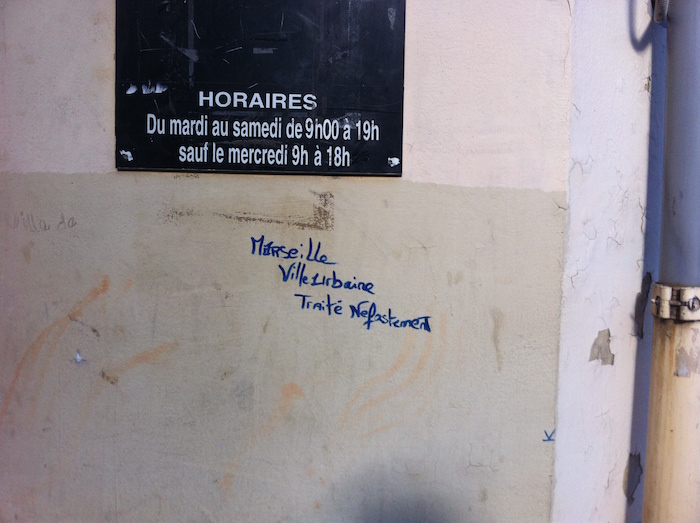 HORAIRES
Du mardi au samedi de 9h00 à 19h
sauf le mercredi 9h à 18h
Marseille
Ville Urbaine
Traité Nefastement